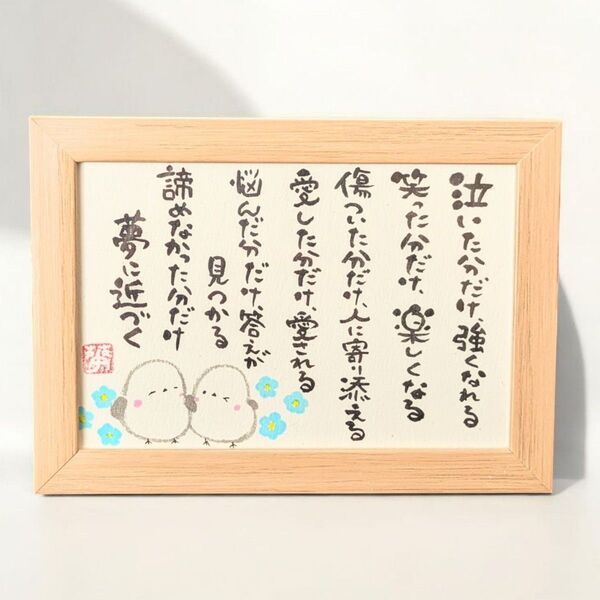 泣いた分だけ、強くなれる
笑った分だけ、楽しくなる
傷ついた分だけ、人に寄り添える
愛した分だけ、愛される
悩んだ分だけ、答えが
見つかる
諦めなかった分だけ
夢に近づく